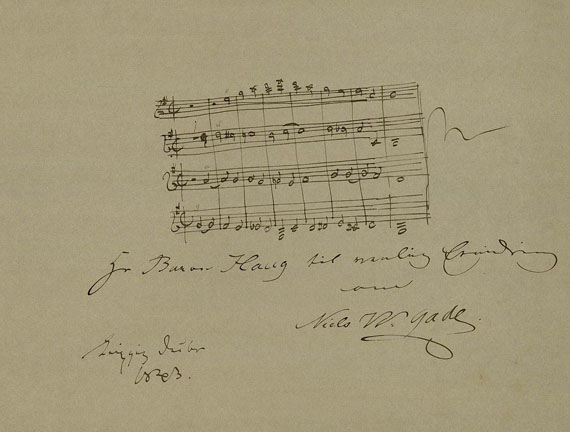 Hr Baron Haug til venlig Erindring
om
Niels W. Gade.
Leipzig Decbr
1843.